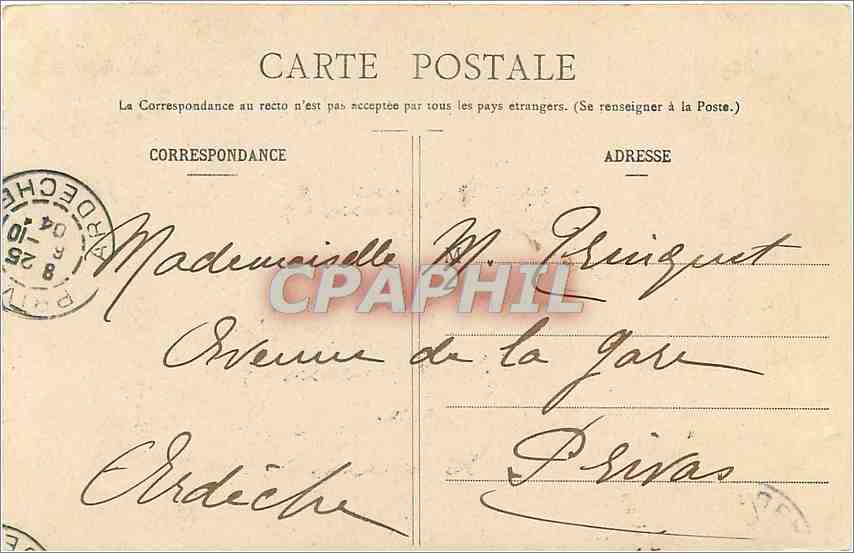 CARTE POSTALE
La Correspondance au recto n'est pas acceptée par tous les pays etrangers. (Se renseigner à la Poste.)
CORRESPONDANCE
ADRESSE
ARDECHE
8 25
6 -10
04
PRIV
CPAPHIL
Mademoiselle M.
Avenue de la gare
Privas
Ardèche